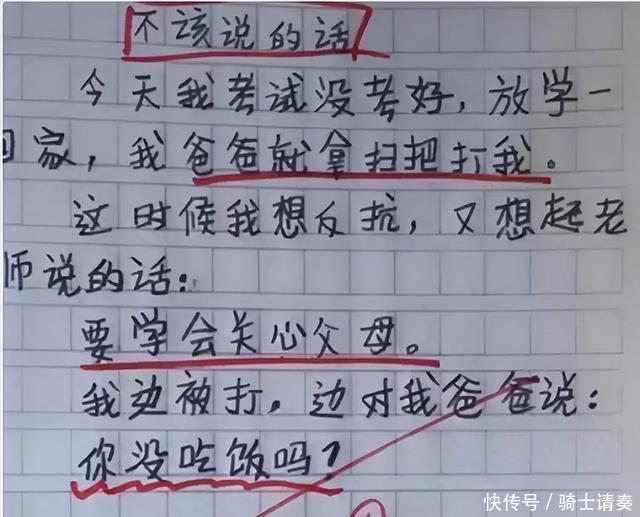 不该说的话
今天我考试没考好，放学一
回家，我爸爸就拿扫把打我。
这时候我想反抗，又想起老
师说的话：
要学会关心父母。
我边被打，边对我爸爸说：
你没吃饭吗？
快传号／骑士请奏